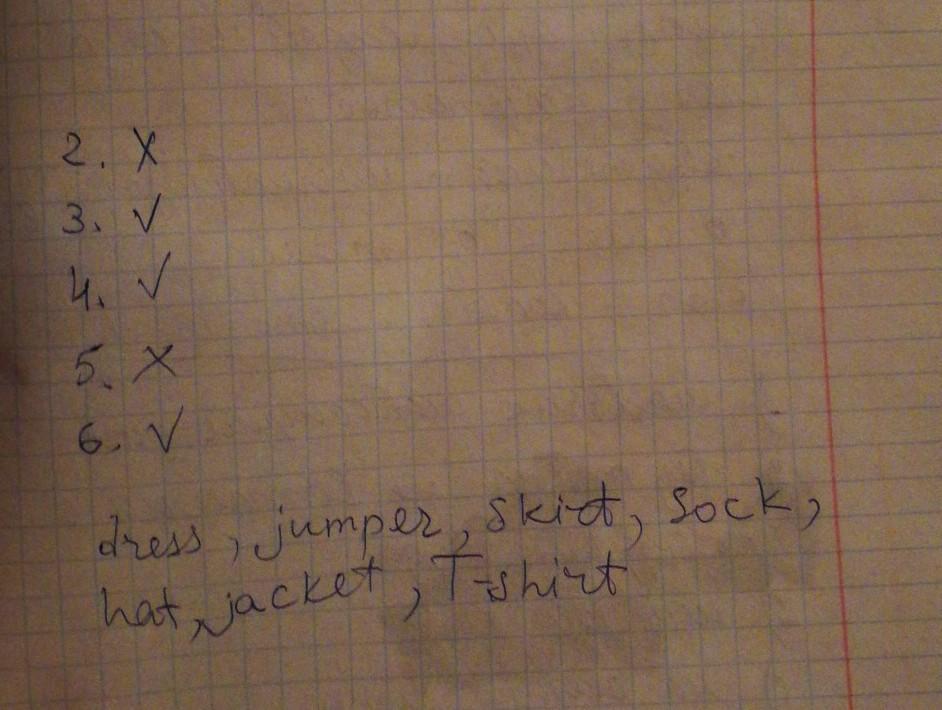 2. X
3. √
4. √
5. X
6. √
dress, jumper, skirt, sock,
hat, jacket, T-shirt